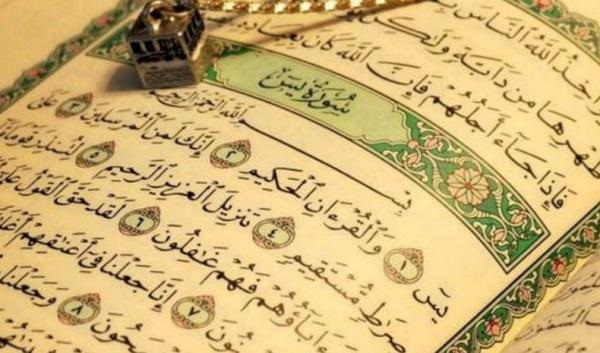 ٱللَّهُ ٱلنَّاسَ
ظَهْرِهَا مِن دَآبَّةٍ وَلَٰكِن
فَإِذَا جَآءَ أَجَلُهُمْ فَإِنَّ ٱللَّهَ كَانَ
سُورَةُ يسٓ
بِسْمِ ٱللَّهِ ٱلرَّحْمَٰنِ ٱلرَّحِيمِ
يسٓ ١ وَٱلْقُرْءَانِ ٱلْحَكِيمِ ٢ إِنَّكَ لَمِنَ ٱلْمُرْسَلِينَ ٣ عَلَىٰ
صِرَٰطٍ مُّسْتَقِيمٍ ٤ تَنزِيلَ ٱلْعَزِيزِ ٱلرَّحِيمِ ٥ لِتُنذِرَ قَوْمًا
ءَابَآؤُهُمْ فَهُمْ غَٰفِلُونَ ٦ لَقَدْ حَقَّ ٱلْقَوْلُ
٧ إِنَّا جَعَلْنَا فِىٓ أَعْنَٰقِهِمْ
٨ وَجَعَلْنَا